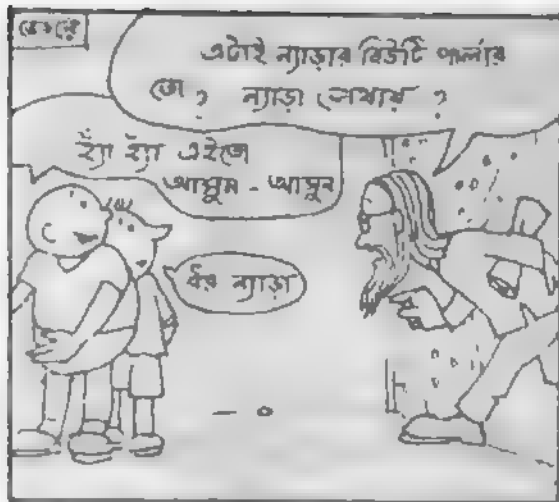 ভেতরে
এটাই ন্যাড়ার বিউটি পার্লার
তো ? ন্যাড়া কোথায় ?
হ্যাঁ হ্যাঁ এইতো
আসুন - আসুন
ন্যাড়া